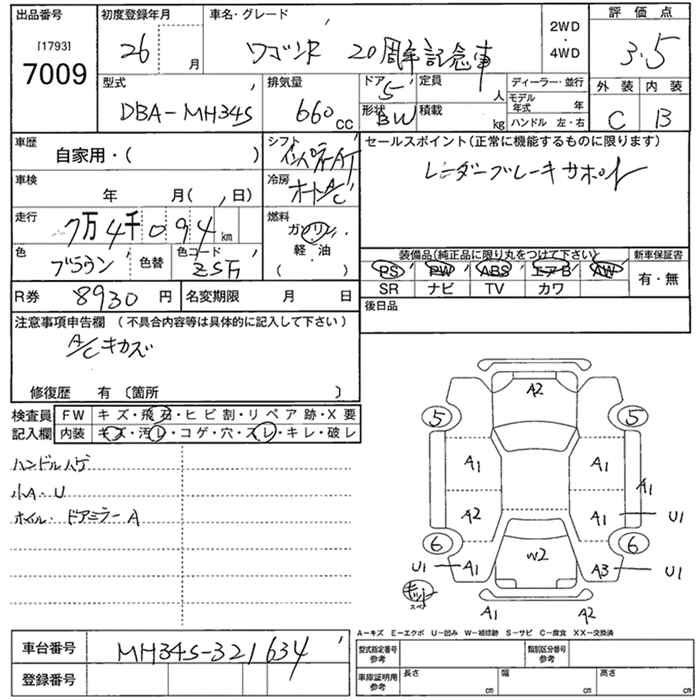 出品番号 初度登録年月 車名・グレード 評価点
[1793] 7009
26 月 ワゴンR 20周年記念車 2WD 4WD 3.5
型式 排気量 ドア 定員 ディーラー・並行 外装 内装
DBA-MH34S 660cc 5 人 モデル年式 年
形状 積載 kg ハンドル 左・右 C B
BW
車歴 自家用・( ) シフト インパネAT
セールスポイント(正常に機能するものに限ります)
レーダーブレーキサポート
車検 年 月( 日) 冷房 オートA/C
走行 7万4千094km 燃料 ガソリン 軽・油 ( )
色 ブラウン 色替 色コード
装備品(純正品に限り丸をつけて下さい) 新車保証書
PS PW ABS エアB AW 有・無
SR ナビ TV カワ
R券 8930円 名変期限 月 日
後日品
注意事項申告欄 (不具合内容等は具体的に記入して下さい)
A/Cキカズ
修復歴 有 〔箇所 〕
検査員記入欄
FW キズ・飛石・ヒビ割・リペア跡・X要
内装 キズ・汚レ・コゲ・穴・スレ・キレ・破レ
ハンドルハゲ
小A・U
ホイル・ドアミラーA
A2
5 5
A1 A1
A1
A2 A1 U1
6 6
U1 A1 W2 A3 U1
キット
スペ
A1 A2
A-キズ E-エクボ U-凹み W-補修跡 S-サビ C-腐食 XX-交換済
車台番号 MH34S-321634
登録番号
型式指定番号 参考 類別区分番号 参考
車庫証明用 参考 長さ cm 幅 cm 高さ cm